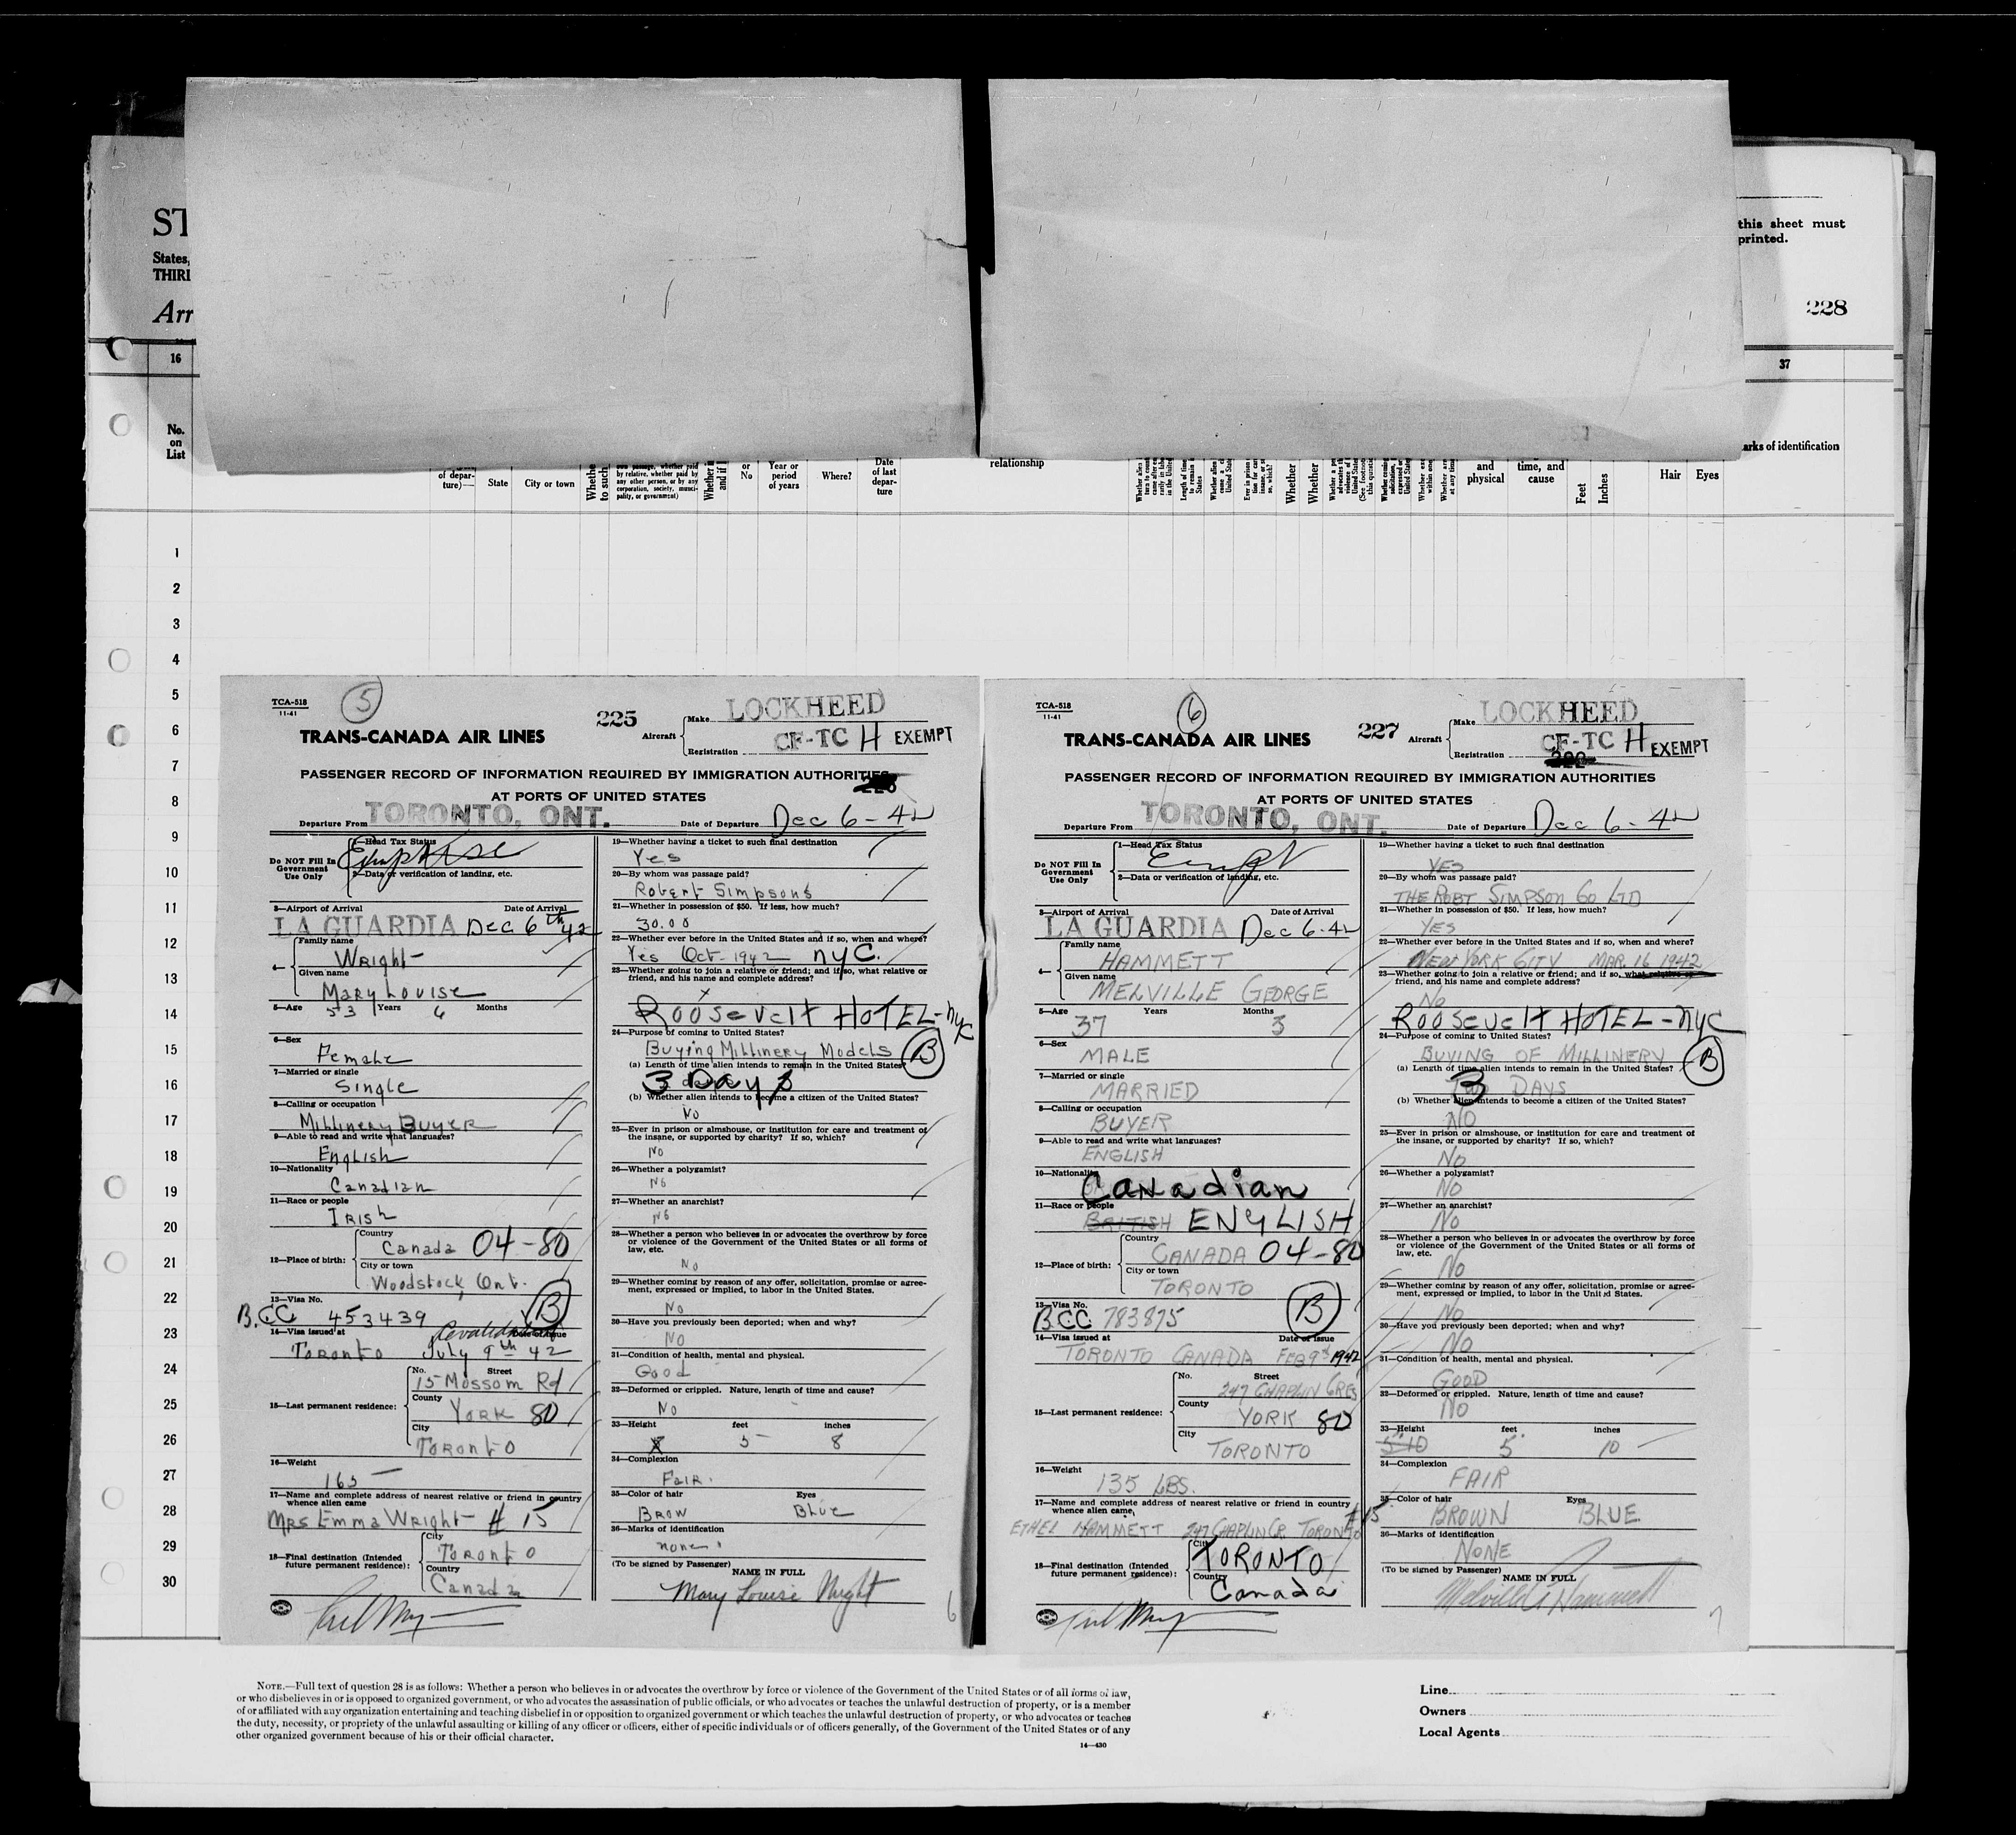 ST
States,
THIRD
Arr
this sheet must
printed.
228
16
37
No.
on
List
of depar-
ture)—
State
City or town
Whethe
to such
own passage, whether paid
by relative, whether paid by
any other person, or by any
corporation, society, munici-
pality, or government)
or
No
Year or
period
of years
Where?
Date
of last
depar-
ture
relationship
and
physical
time, and
cause
Feet
Inches
Hair
Eyes
arks of identification
1
2
3
4
5
6
7
8
9
10
11
12
13
14
15
16
17
18
19
20
21
22
23
24
25
26
27
28
29
30
TCA-518
11-41
5
225
TRANS-CANADA AIR LINES
Aircraft
Make LOCKHEED
Registration CF-TC H EXEMPT
PASSENGER RECORD OF INFORMATION REQUIRED BY IMMIGRATION AUTHORITIES
AT PORTS OF UNITED STATES
Departure From TORONTO, ONT. Date of Departure Dec 6-42
Do NOT Fill In
Government
Use Only
1—Head Tax Status
2—Data or verification of landing, etc.
3—Airport of Arrival Date of Arrival
LA GUARDIA Dec 6th 42
4—
Family name
Wright
Given name
Mary Louise
5—Age 53 Years 6 Months
6—Sex
Female
7—Married or single
Single
8—Calling or occupation
Millinery Buyer
9—Able to read and write what languages?
English
10—Nationality
Canadian
11—Race or people
Irish
12—Place of birth:
Country
Canada 04-80
City or town
Woodstock, Ont.
13—Visa No.
B.CC 453439 B
14—Visa issued at Date of Issue
Toronto July 9th 42
15—Last permanent residence:
No. Street
15 Mossom Rd
County
York 80
City
Toronto
16—Weight
165
17—Name and complete address of nearest relative or friend in country
whence alien came
Mrs Emma Wright # 15
18—Final destination (Intended
future permanent residence):
City
Toronto
Country
Canada
19—Whether having a ticket to such final destination
Yes
20—By whom was passage paid?
Robert Simpsons
21—Whether in possession of $50. If less, how much?
30.00
22—Whether ever before in the United States and if so, when and where?
Yes Oct-1942 NYC.
23—Whether going to join a relative or friend; and if so, what relative or
friend, and his name and complete address?
x
Roosevelt HOTEL-NYC
24—Purpose of coming to United States?
Buying Millinery Models B
(a) Length of time alien intends to remain in the United States?
3 Days
(b) Whether alien intends to become a citizen of the United States?
No
25—Ever in prison or almshouse, or institution for care and treatment of
the insane, or supported by charity? If so, which?
No
26—Whether a polygamist?
No
27—Whether an anarchist?
No
28—Whether a person who believes in or advocates the overthrow by force
or violence of the Government of the United States or all forms of
law, etc.
No
29—Whether coming by reason of any offer, solicitation, promise or agree-
ment, expressed or implied, to labor in the United States.
No
30—Have you previously been deported; when and why?
No
31—Condition of health, mental and physical.
Good
32—Deformed or crippled. Nature, length of time and cause?
No
33—Height feet inches
5 8
34—Complexion
Fair.
35—Color of hair Eyes
Brow Blue
36—Marks of identification
none
(To be signed by Passenger)
NAME IN FULL
Mary Louise Wright
6
TCA-518
11-41
6
227
TRANS-CANADA AIR LINES
Aircraft
Make LOCKHEED
Registration CF-TC H EXEMPT
PASSENGER RECORD OF INFORMATION REQUIRED BY IMMIGRATION AUTHORITIES
AT PORTS OF UNITED STATES
Departure From TORONTO, ONT. Date of Departure Dec 6-42
Do NOT Fill In
Government
Use Only
1—Head Tax Status
2—Data or verification of landing, etc.
3—Airport of Arrival Date of Arrival
LA GUARDIA Dec 6-42
4—
Family name
HAMMETT
Given name
MELVILLE GEORGE
5—Age Years Months
37 3
6—Sex
MALE
7—Married or single
MARRIED
8—Calling or occupation
BUYER
9—Able to read and write what languages?
ENGLISH
10—Nationality
Canadian
11—Race or people
BRITISH ENGLISH
12—Place of birth:
Country
CANADA 04-80
City or town
TORONTO
13—Visa No.
BCC 783875 B
14—Visa issued at Date of Issue
TORONTO CANADA FEB 9th 1942
15—Last permanent residence:
No. Street
247 CHAPLIN CRES
County
YORK 80
City
TORONTO
16—Weight
135 LBS.
17—Name and complete address of nearest relative or friend in country
whence alien came,
ETHEL HAMMETT 247 CHAPLIN CR. TORONTO # 15
18—Final destination (Intended
future permanent residence):
City
TORONTO
Country
Canada
19—Whether having a ticket to such final destination
YES
20—By whom was passage paid?
THE ROBT SIMPSON CO LTD
21—Whether in possession of $50. If less, how much?
YES
22—Whether ever before in the United States and if so, when and where?
NEW YORK CITY MAR. 16 1942
23—Whether going to join a relative or friend; and if so, what relative or
friend, and his name and complete address?
No
Roosevelt HOTEL-NYC
24—Purpose of coming to United States?
BUYING OF MILLINERY B
(a) Length of time alien intends to remain in the United States?
3 DAYS
(b) Whether alien intends to become a citizen of the United States?
NO
25—Ever in prison or almshouse, or institution for care and treatment of
the insane, or supported by charity? If so, which?
No
26—Whether a polygamist?
No
27—Whether an anarchist?
No
28—Whether a person who believes in or advocates the overthrow by force
or violence of the Government of the United States or all forms of
law, etc.
No
29—Whether coming by reason of any offer, solicitation, promise or agree-
ment, expressed or implied, to labor in the United States.
No
30—Have you previously been deported; when and why?
No
31—Condition of health, mental and physical.
GOOD
32—Deformed or crippled. Nature, length of time and cause?
No
33—Height feet inches
5'10 5' 10
34—Complexion
FAIR
35—Color of hair Eyes
BROWN BLUE
36—Marks of identification
NONE
(To be signed by Passenger)
NAME IN FULL
Melville G Hammett
7
NOTE.—Full text of question 28 is as follows: Whether a person who believes in or advocates the overthrow by force or violence of the Government of the United States or of all forms of law,
or who disbelieves in or is opposed to organized government, or who advocates the assassination of public officials, or who advocates or teaches the unlawful destruction of property, or is a member
of or affiliated with any organization entertaining and teaching disbelief in or opposition to organized government or which teaches the unlawful destruction of property, or who advocates or teaches
the duty, necessity, or propriety of the unlawful assaulting or killing of any officer or officers, either of specific individuals or of officers generally, of the Government of the United States or of any
other organized government because of his or their official character.
14—430
Line
Owners
Local Agents